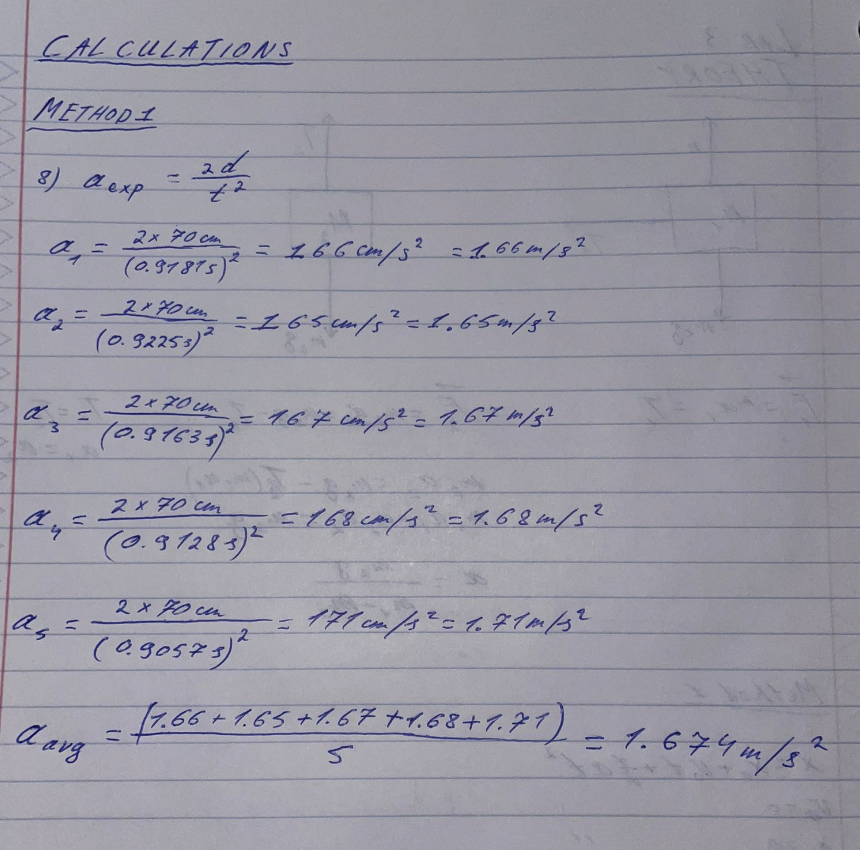 CALCULATIONS
METHOD 1
8) a exp = 2d / t²
a₁ = 2 × 70 cm / (0.9181s)² = 166 cm/s² = 1.66 m/s²
a₂ = 2 × 70 cm / (0.9225s)² = 165 cm/s² = 1.65 m/s²
a₃ = 2 × 70 cm / (0.9163s)² = 167 cm/s² = 1.67 m/s²
a₄ = 2 × 70 cm / (0.9128s)² = 168 cm/s² = 1.68 m/s²
a₅ = 2 × 70 cm / (0.9057s)² = 171 cm/s² = 1.71 m/s²
a avg = (1.66 + 1.65 + 1.67 + 1.68 + 1.71) / 5 = 1.674 m/s²